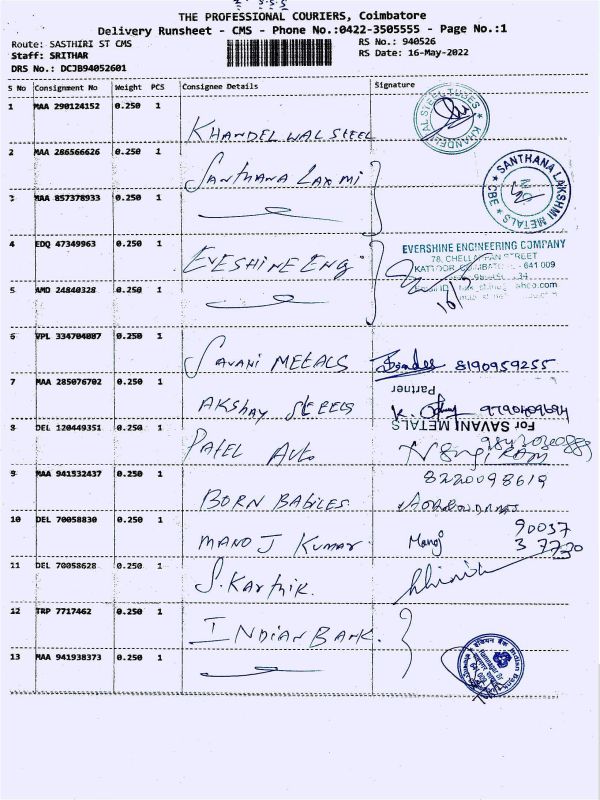 THE PROFESSIONAL COURIERS, Coimbatore
Delivery Runsheet - CMS - Phone No.:0422-3505555 - Page No.:1
Route: SASTHIRI ST CMS
RS No.: 940526
Staff: SRITHAR
RS Date: 16-May-2022
DRS No.: DCJB94052601
S No Consignment No Weight PCS Consignee Details Signature
1 MAA 290124152 0.250 1 KHANDELWAL STEEL
2 MAA 286566626 0.250 1 SANTHANA LAXMI
SANTHANA LAKSHMI METALS CBE
3 MAA 857378933 0.250 1
4 EDQ 47349963 0.250 1 EVESHINE ENG
EVERSHINE ENGINEERING COMPANY
78, STREET
KATTOOR - 641 009
5 AMD 24840328 0.250 1
6 VPL 334704087 0.250 1 SAVANI METALS 8190959255
Partner
7 MAA 285076702 0.250 1 AKSHAY STEELS
For SAVANI METALS
8 DEL 120449351 0.250 1 PATEL AUTO
9 MAA 941532437 0.250 1 BORN BABIES 8220098619
10 DEL 70058830 0.250 1 MANOJ KUMAR Manoj 90037
37770
11 DEL 70058628 0.250 1 S. Karthik.
12 TRP 7717462 0.250 1 INDIAN BANK.
13 MAA 941938373 0.250 1